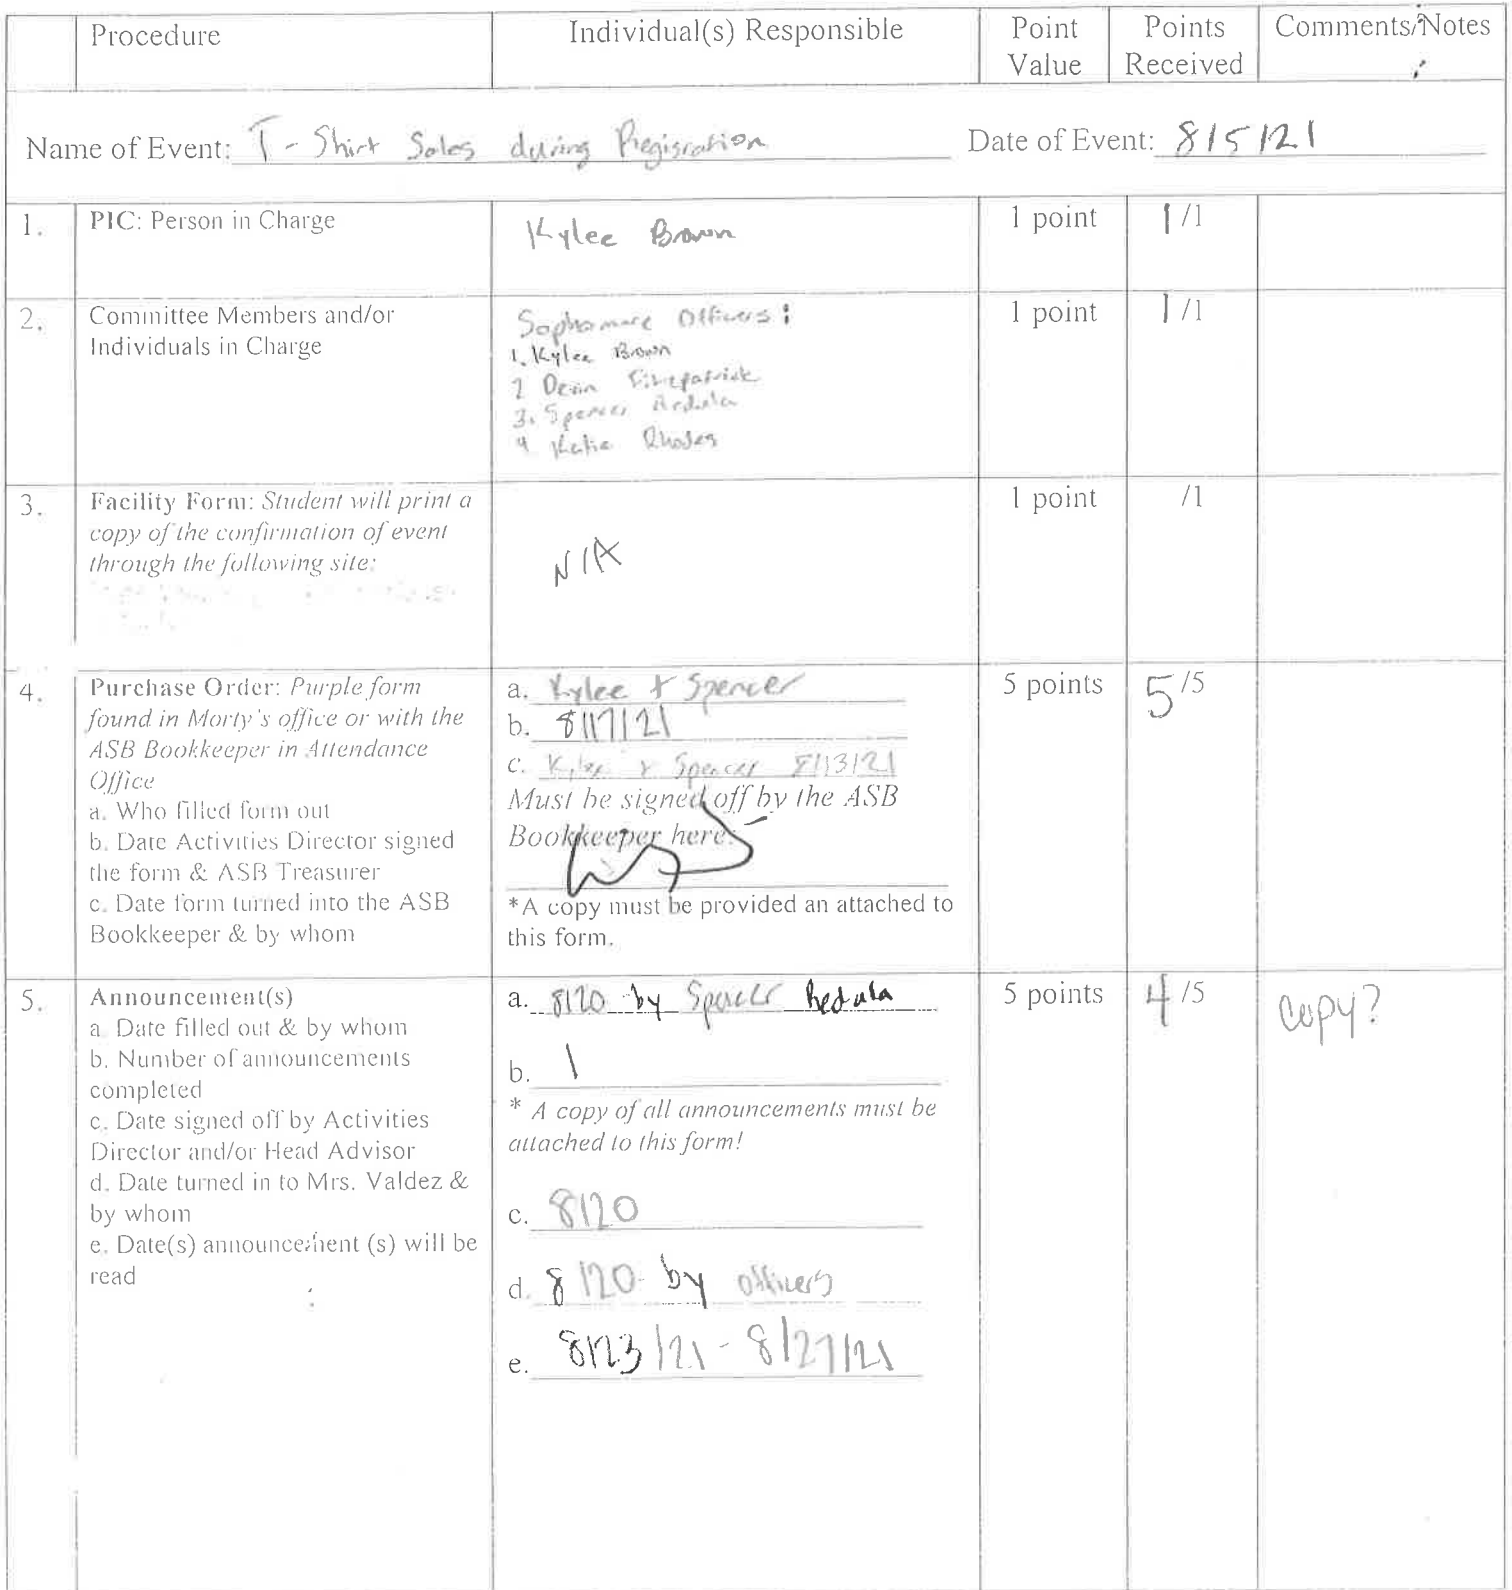 Procedure
Individual(s) Responsible
Point Value
Points Received
Comments/Notes
Name of Event: T-Shirt Sales during Regisration
Date of Event: 8/5/21
1.
PIC: Person in Charge
Kylee Brown
1 point
1/1
2.
Committee Members and/or
Individuals in Charge
Sophomore Officers:
1. Kylee Brown
2 Devin Fitzpatrick
3. Spencer
4 Katie Rhodes
1 point
1/1
3.
Facility Form: Student will print a
copy of the confirmation of event
through the following site:
N/A
1 point
/1
4.
Purchase Order: Purple form
found in Morty's office or with the
ASB Bookkeeper in Attendance
Office
a. Who filled form out
b. Date Activities Director signed
the form & ASB Treasurer
c. Date form turned into the ASB
Bookkeeper & by whom
a. Kylee + Spencer
b. 8/17/21
c. Kylee + Spencer 8/13/21
Must be signed off by the ASB
Bookkeeper here:
*A copy must be provided an attached to
this form.
5 points
5/5
5.
Announcement(s)
a. Date filled out & by whom
b. Number of announcements
completed
c. Date signed off by Activities
Director and/or Head Advisor
d. Date turned in to Mrs. Valdez &
by whom
e. Date(s) announcement (s) will be
read
a. 8/20 by Spencer Redula
b. 1
* A copy of all announcements must be
attached to this form!
c. 8/20
d. 8/20 by officers
e. 8/23/21 - 8/27/21
5 points
4/5
copy?